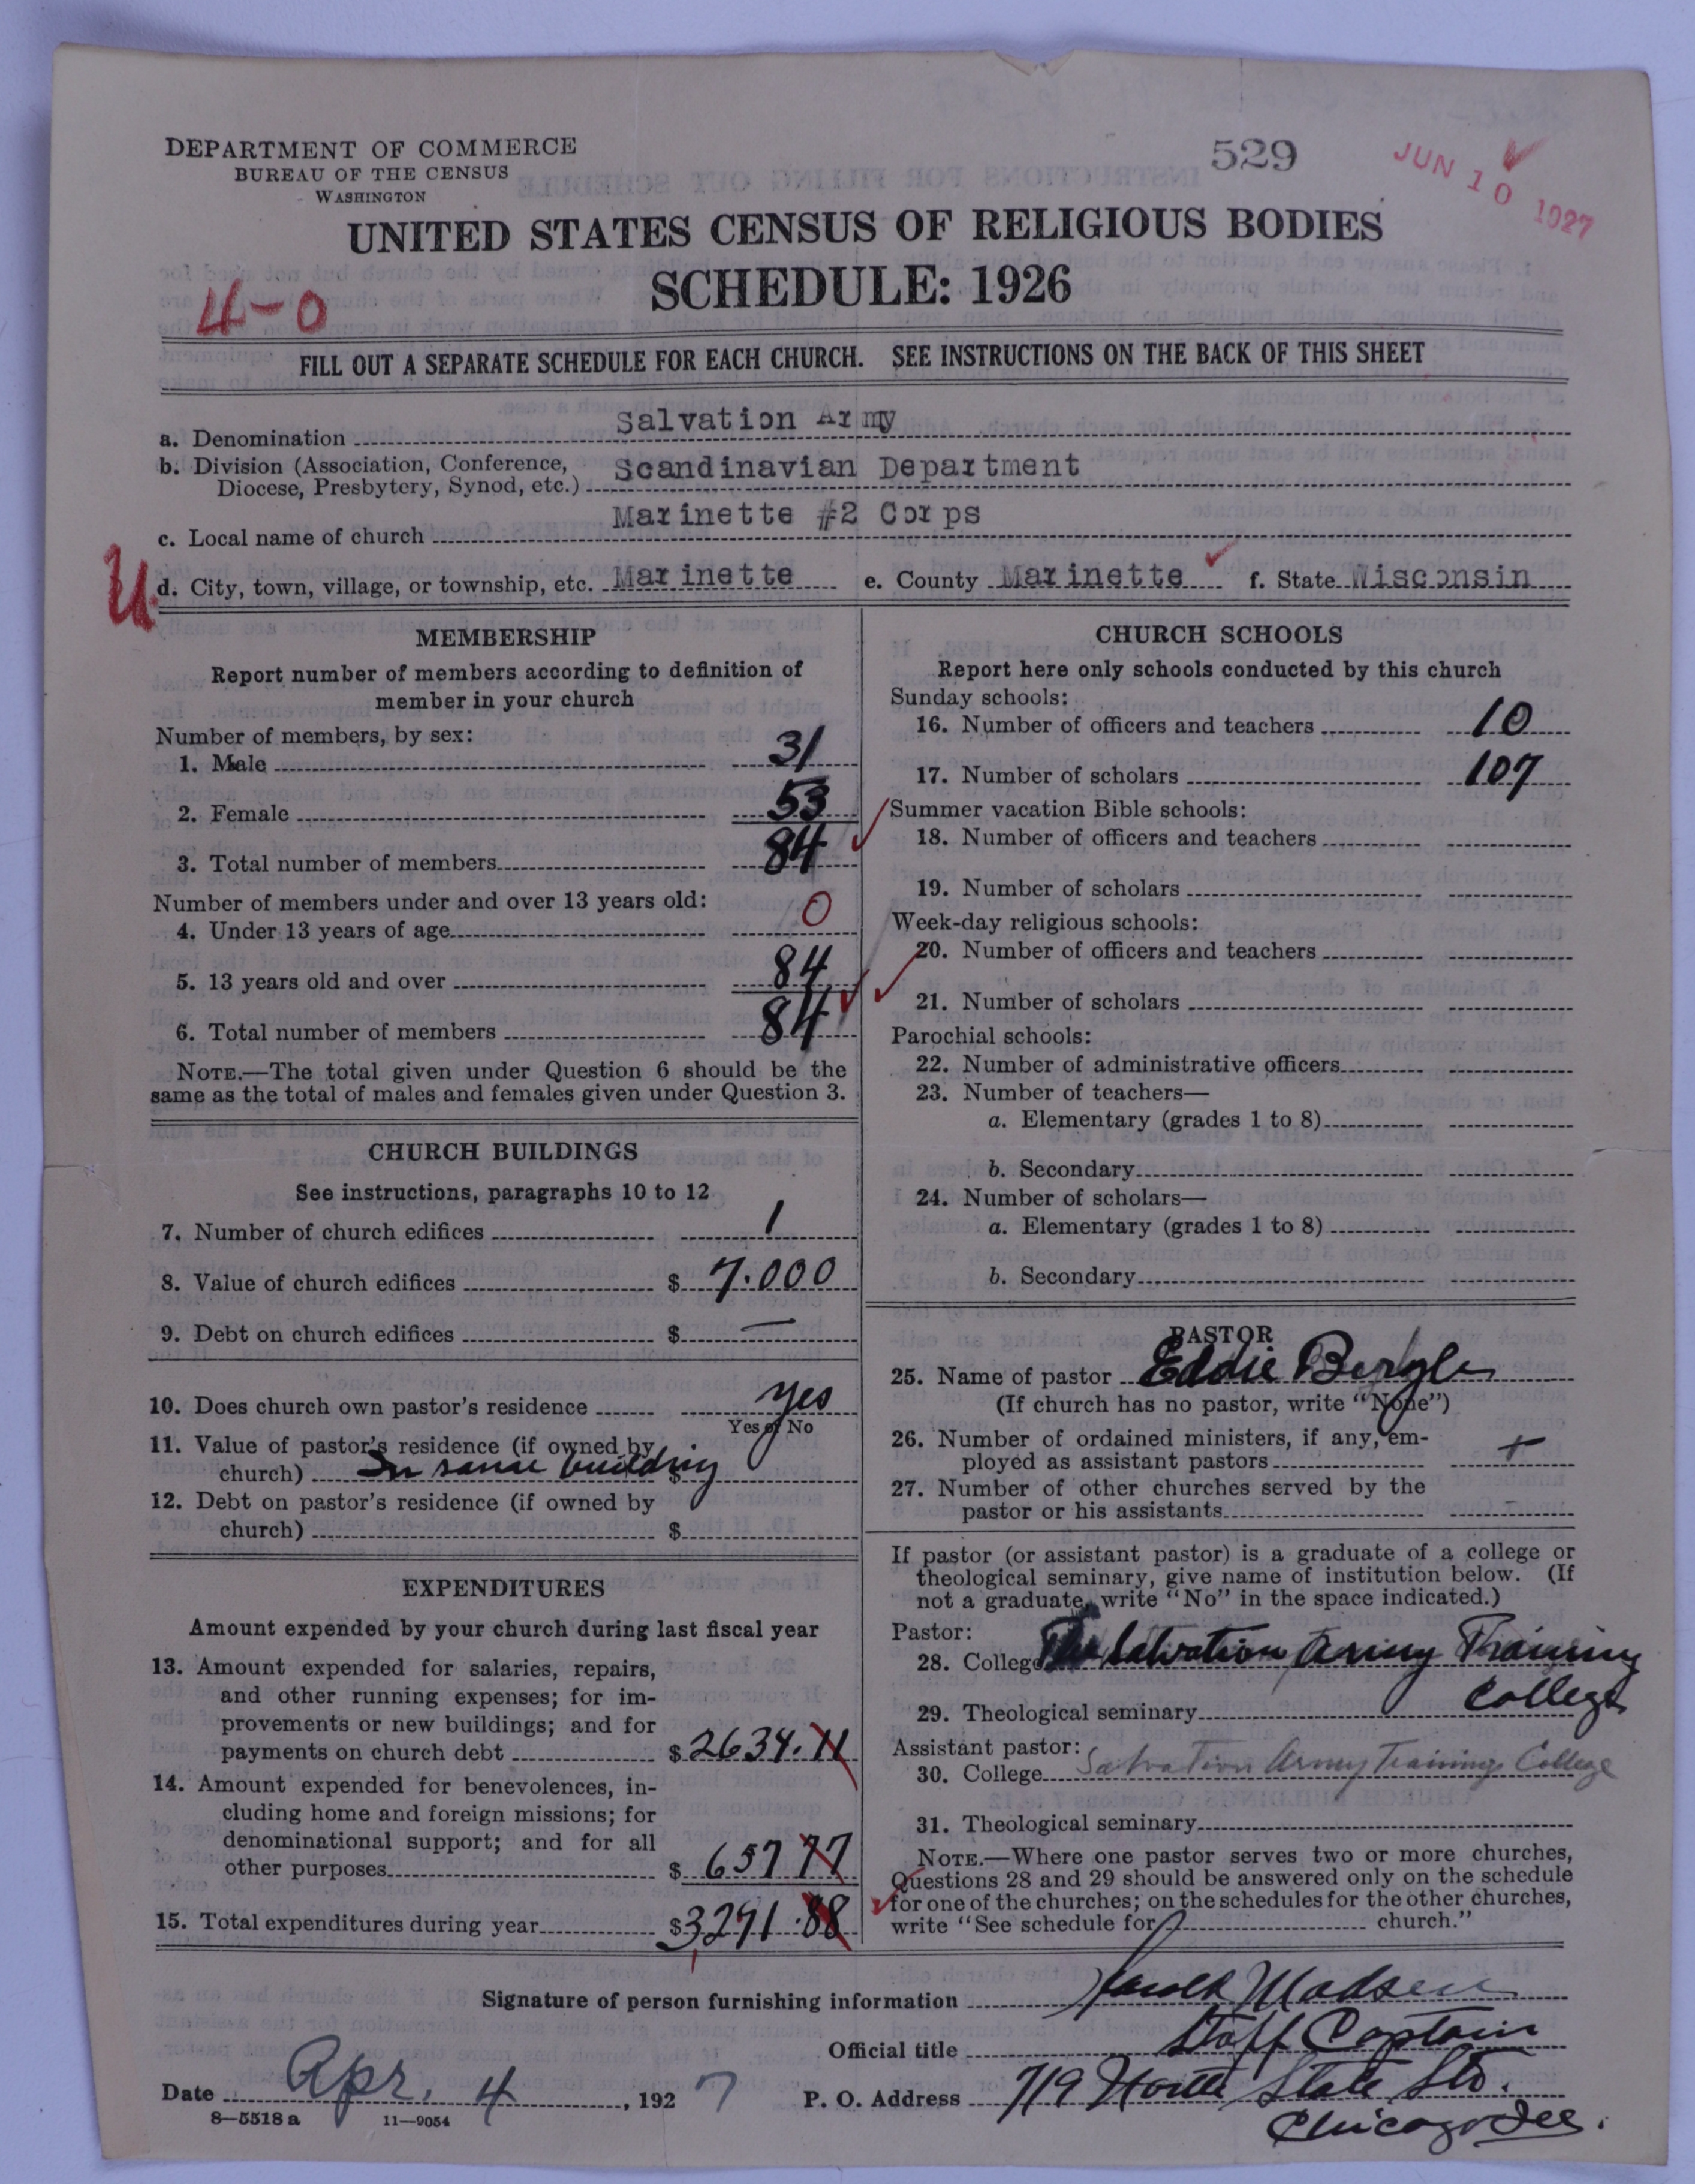 DEPARTMENT OF COMMERCE
BUREAU OF THE CENSUS
WASHINGTON
529
JUN 10 1927
UNITED STATES CENSUS OF RELIGIOUS BODIES
SCHEDULE: 1926
4-0
FILL OUT A SEPARATE SCHEDULE FOR EACH CHURCH. SEE INSTRUCTIONS ON THE BACK OF THIS SHEET
a. Denomination Salvation Army
b. Division (Association, Conference, Diocese, Presbytery, Synod, etc.) Scandinavian Department
c. Local name of church Marinette #2 Corps
U. d. City, town, village, or township, etc. Marinette e. County Marinette f. State Wisconsin
MEMBERSHIP
Report number of members according to definition of
member in your church
Number of members, by sex:
1. Male 31
2. Female 53
3. Total number of members 84
Number of members under and over 13 years old:
4. Under 13 years of age 0
5. 13 years old and over 84
6. Total number of members 84
NOTE.—The total given under Question 6 should be the
same as the total of males and females given under Question 3.
CHURCH BUILDINGS
See instructions, paragraphs 10 to 12
7. Number of church edifices 1
8. Value of church edifices $ 7.000
9. Debt on church edifices $ —
10. Does church own pastor's residence yes
Yes or No
11. Value of pastor's residence (if owned by
church) In same building $
12. Debt on pastor's residence (if owned by
church) $
EXPENDITURES
Amount expended by your church during last fiscal year
13. Amount expended for salaries, repairs,
and other running expenses; for im-
provements or new buildings; and for
payments on church debt $ 2634.11
14. Amount expended for benevolences, in-
cluding home and foreign missions; for
denominational support; and for all
other purposes $ 657 77
15. Total expenditures during year $ 3,291.88
CHURCH SCHOOLS
Report here only schools conducted by this church
Sunday schools:
16. Number of officers and teachers 10
17. Number of scholars 107
Summer vacation Bible schools:
18. Number of officers and teachers
19. Number of scholars
Week-day religious schools:
20. Number of officers and teachers
21. Number of scholars
Parochial schools:
22. Number of administrative officers
23. Number of teachers—
a. Elementary (grades 1 to 8)
b. Secondary
24. Number of scholars—
a. Elementary (grades 1 to 8)
b. Secondary
PASTOR
25. Name of pastor Eddie
(If church has no pastor, write "None")
26. Number of ordained ministers, if any, em-
ployed as assistant pastors
27. Number of other churches served by the
pastor or his assistants -
If pastor (or assistant pastor) is a graduate of a college or
theological seminary, give name of institution below. (If
not a graduate, write "No" in the space indicated.)
Pastor:
28. College The Salvation Army Training
College
29. Theological seminary
Assistant pastor:
30. College Salvation Army Training College
31. Theological seminary
NOTE.—Where one pastor serves two or more churches,
Questions 28 and 29 should be answered only on the schedule
for one of the churches; on the schedules for the other churches,
write "See schedule for church."
Signature of person furnishing information Harold Madsen
Official title Staff Captain
Date Apr. 4, 1927 P. O. Address 719 North State Str.
Chicago Ill.
8—5518 a 11—9054